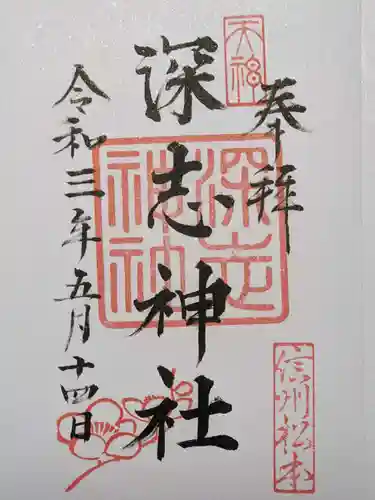 天神
奉拝
深志神社
深志神社
信州松本
令和三年五月十四日